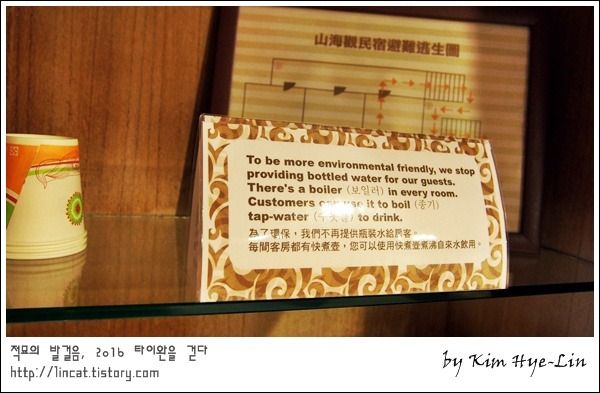 山海觀民宿避難逃生圖
To be more environmental friendly, we stop
providing bottled water for our guests.
There's a boiler (보일러) in every room.
Customers can use it to boil (종기)
tap-water to drink.
為了環保，我們不再提供瓶裝水給房客。
每間客房都有快煮壺，您可以使用快煮壺煮沸自來水飲用。
적묘의 발걸음, 2016 타이완을 걷다
http://lincat.tistory.com
by Kim Hye-Lin